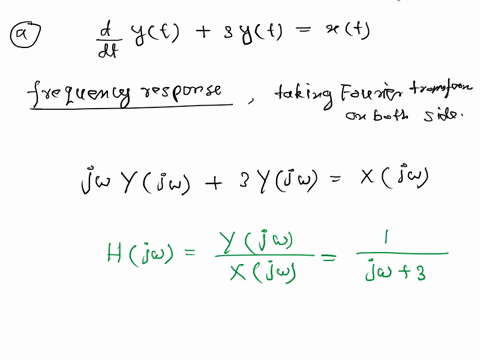 (a) d/dt y(t) + 3y(t) = x(t)
frequency response, taking Fourier transform
on both side.
jω Y(jω) + 3Y(jω) = X(jω)
H(jω) = Y(jω)/X(jω) = 1/(jω+3)